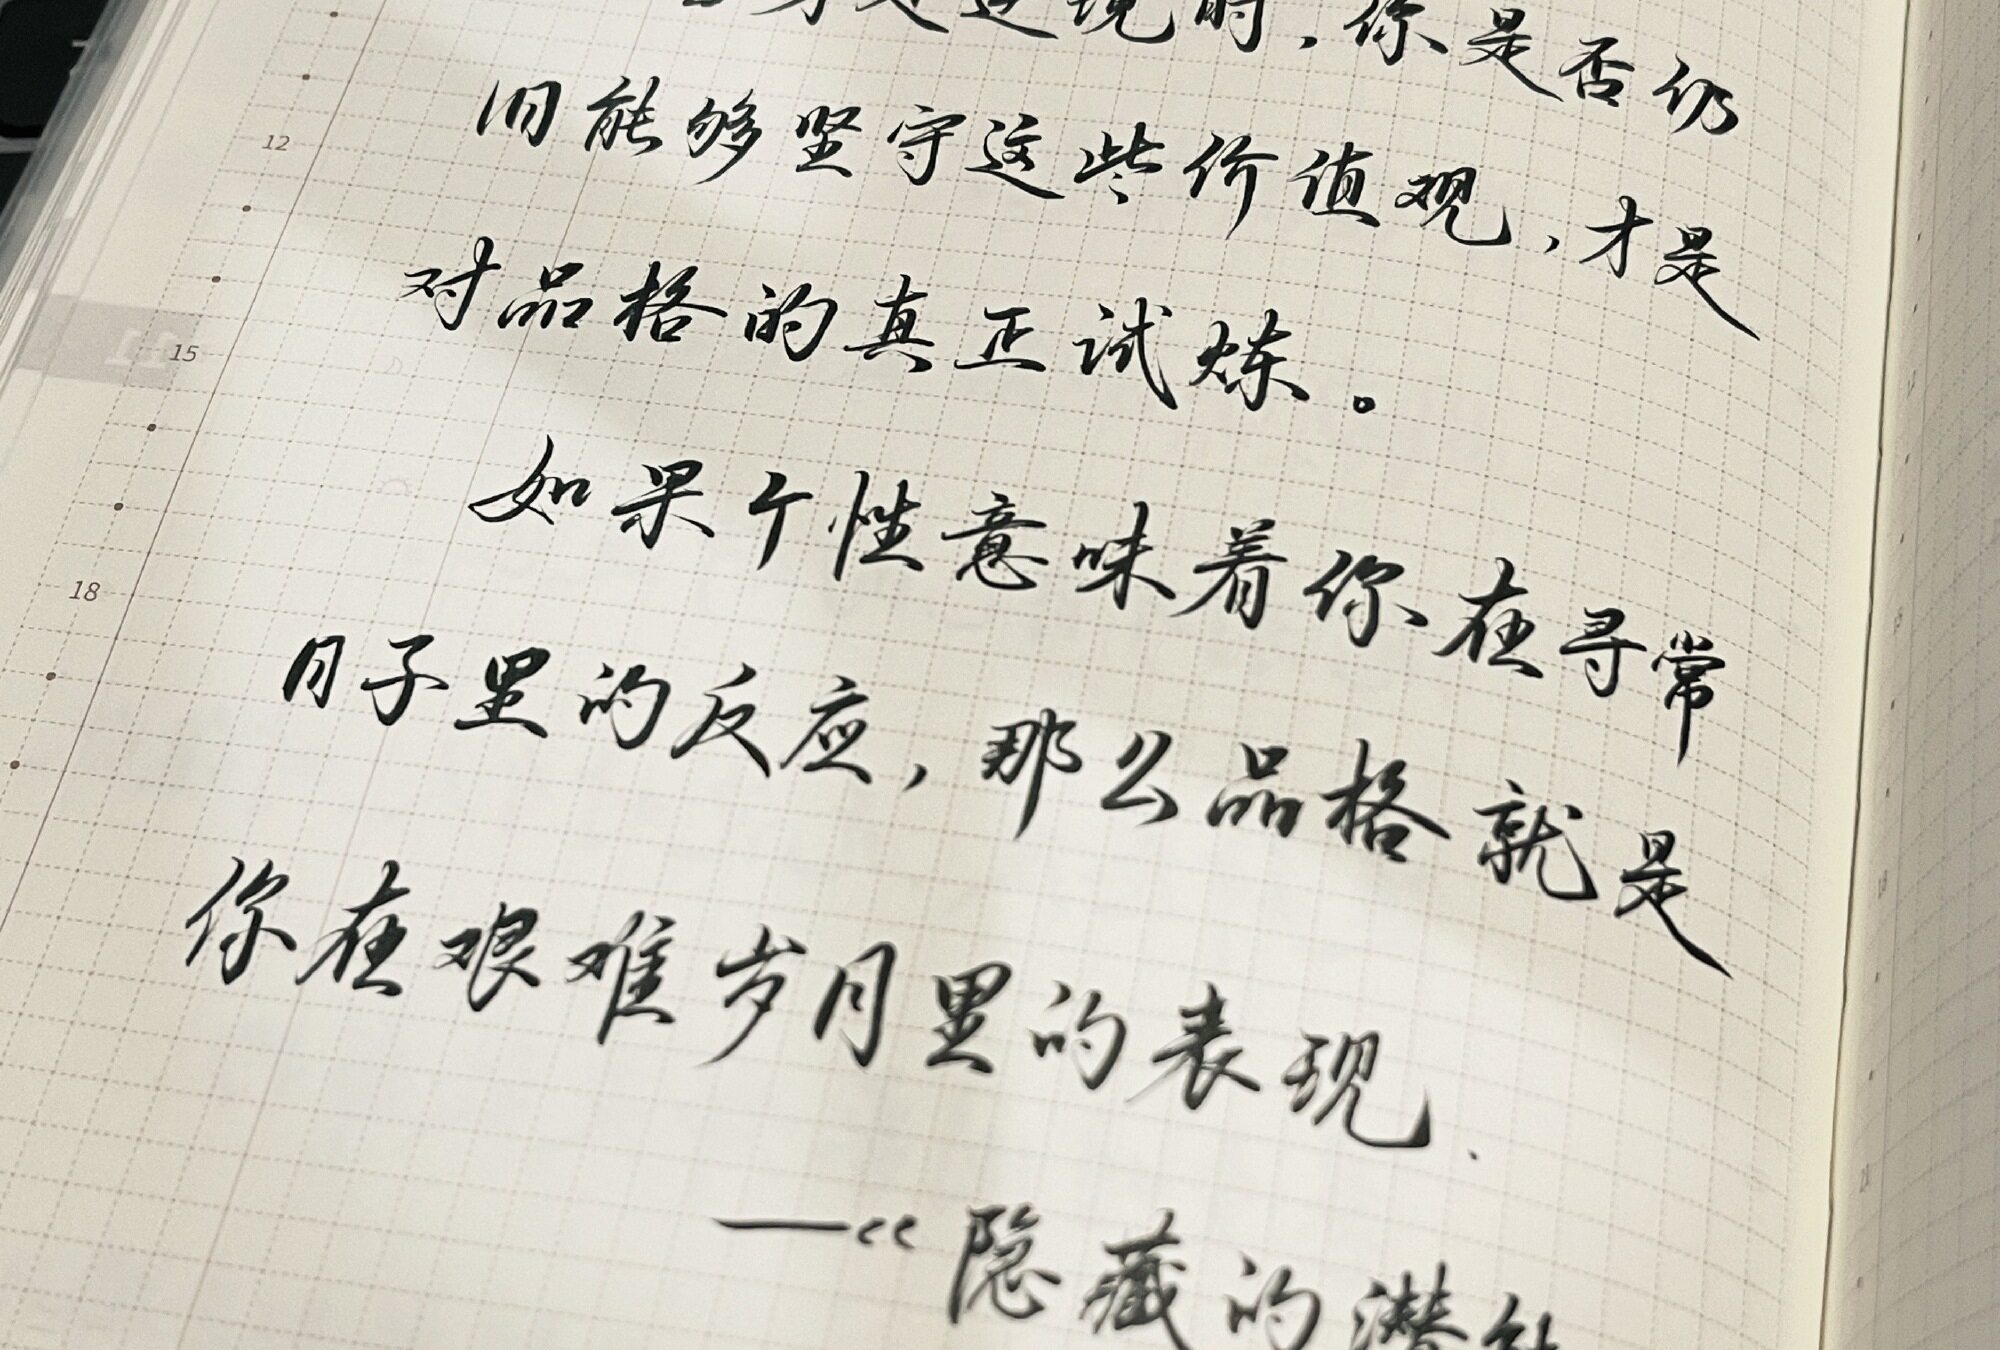 境时，你是否仍
旧能够坚守这些价值观，才是
对品格的真正试炼。
如果个性意味着你在寻常
日子里的反应，那么品格就是
你在艰难岁月里的表现.
——“隐藏的潜
12
15
18